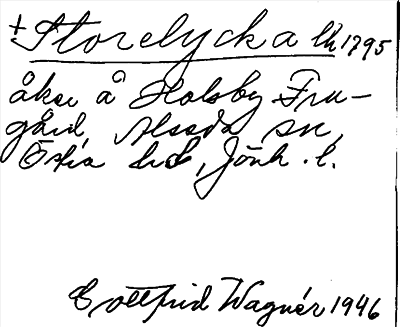 +Storelycka lh 1795
åker å Holsby Fru-
gård, Alseda sn,
Östra hd, Jönk. l.
Gottfrid Wagnér 1946